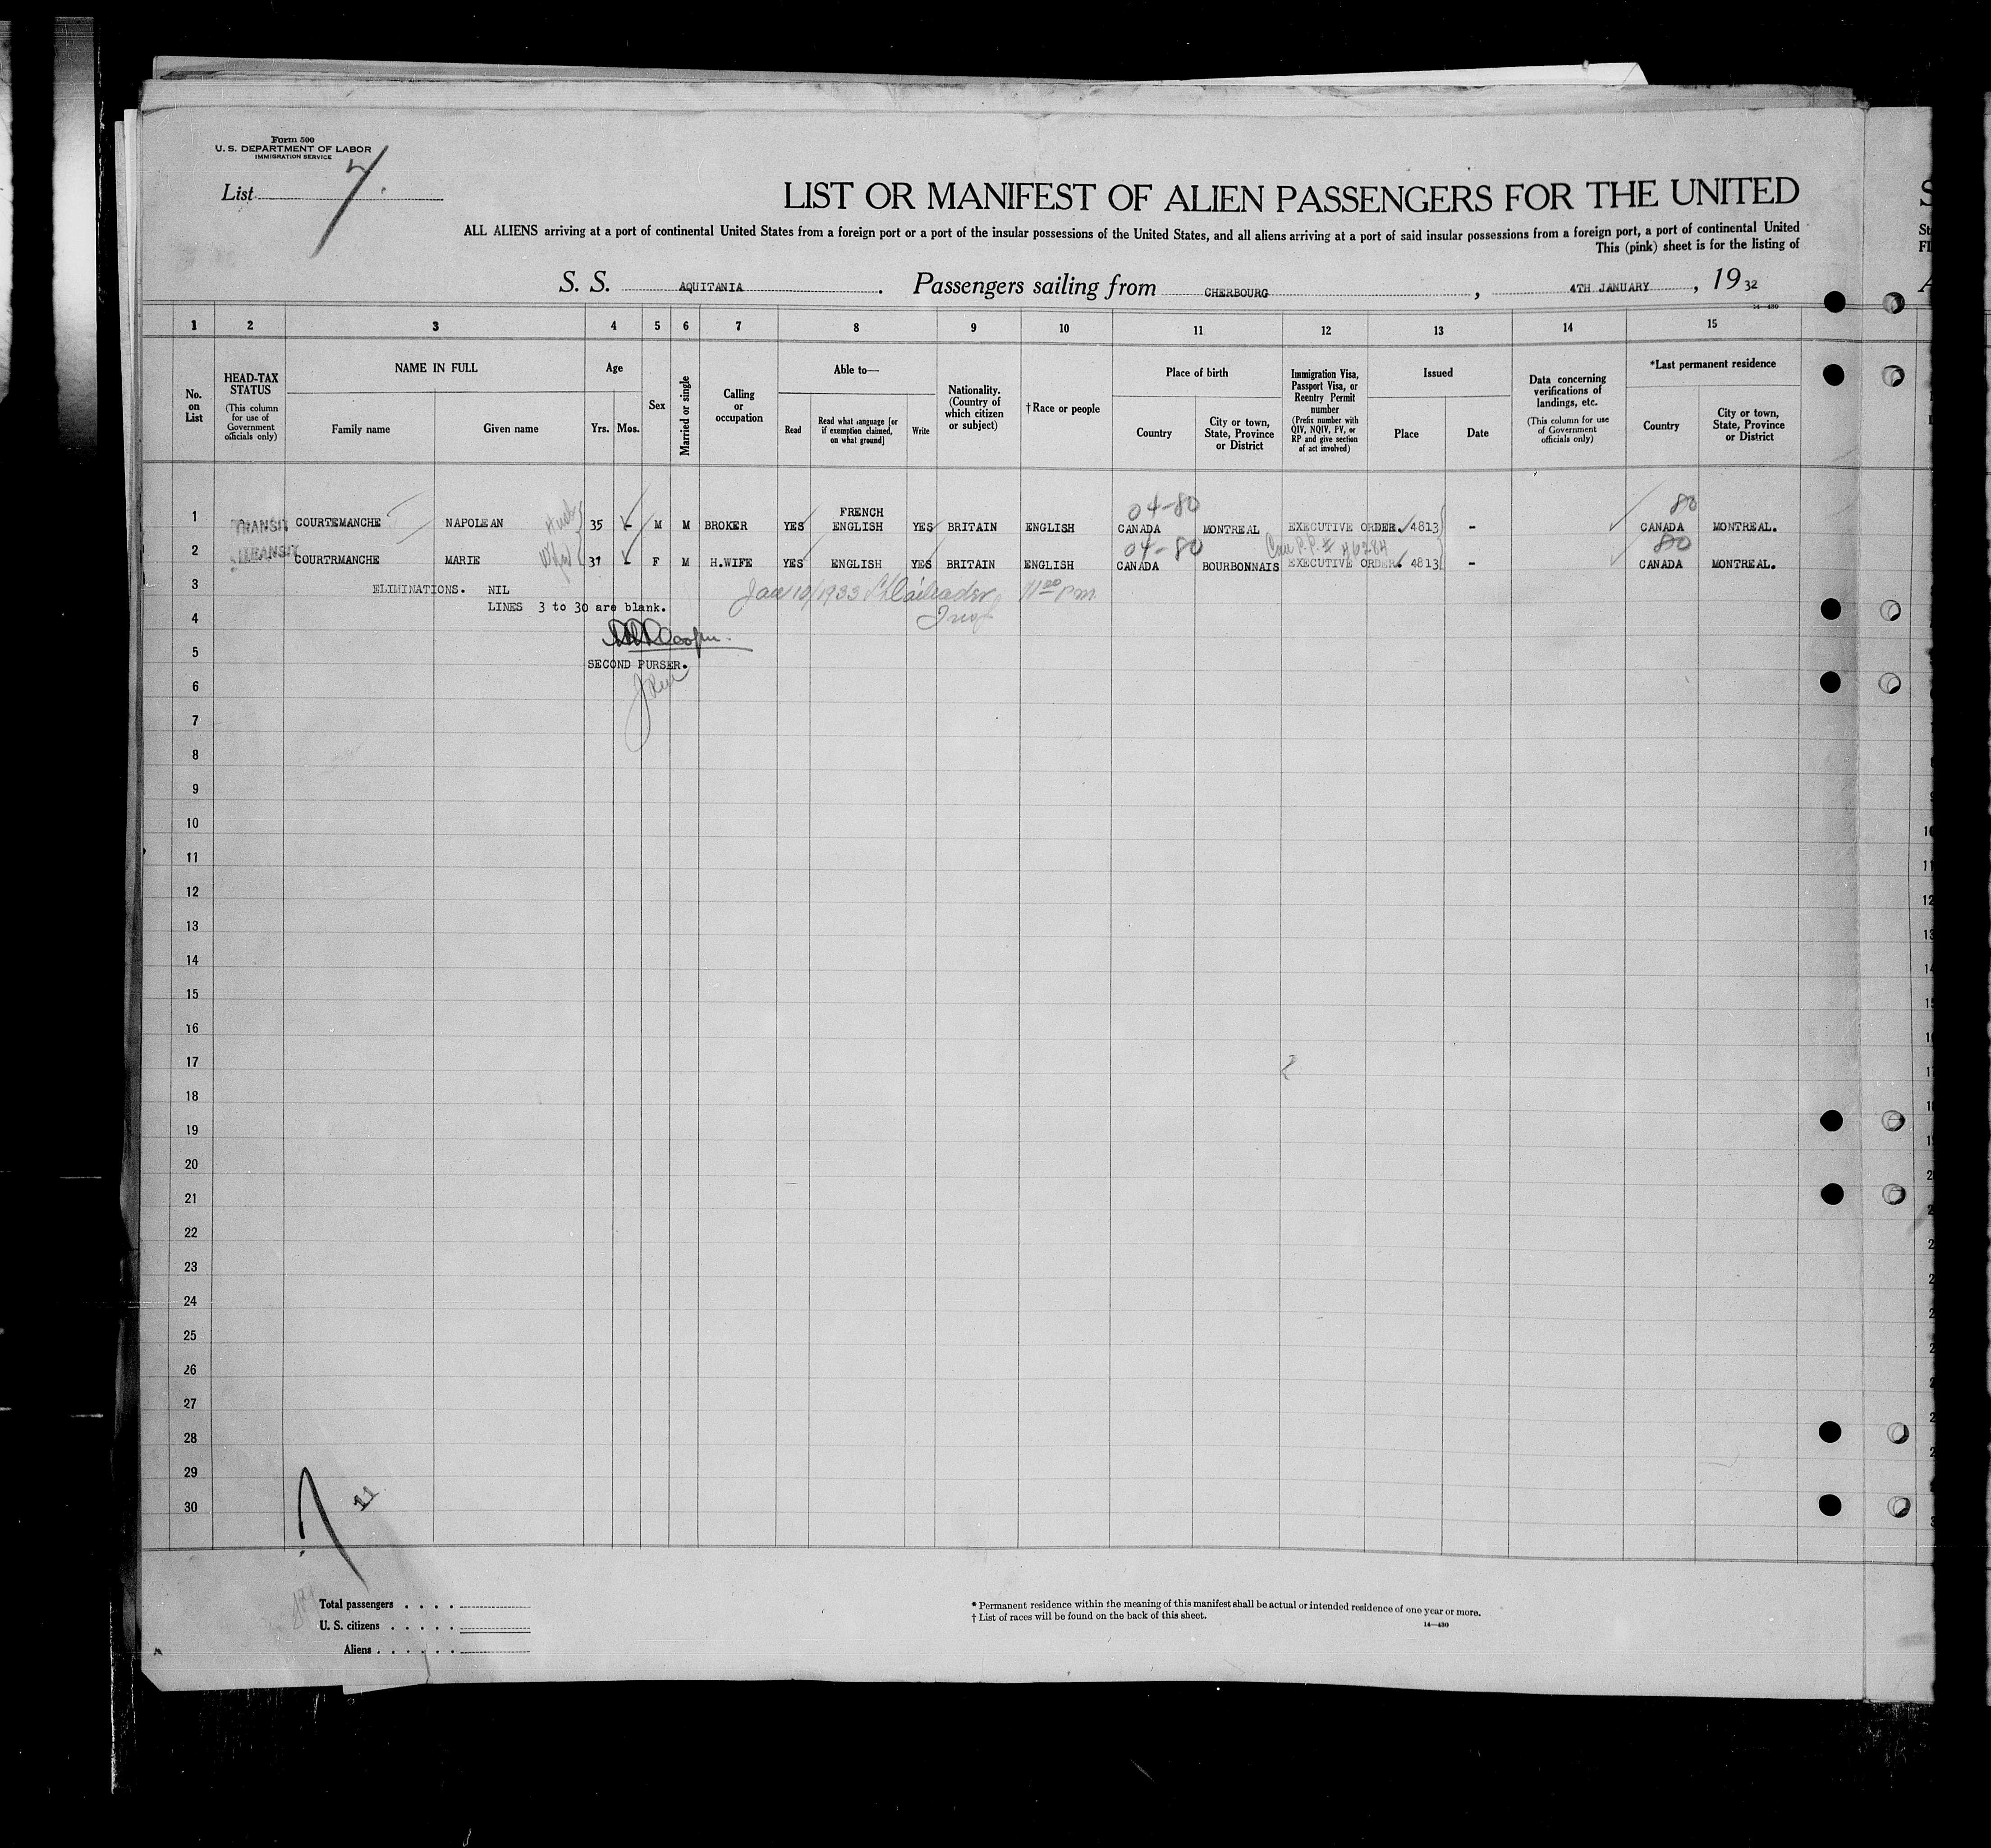 Form 500
U. S. DEPARTMENT OF LABOR
IMMIGRATION SERVICE
List 7.
LIST OR MANIFEST OF ALIEN PASSENGERS FOR THE UNITED
ALL ALIENS arriving at a port of continental United States from a foreign port or a port of the insular possessions of the United States, and all aliens arriving at a port of said insular possessions from a foreign port, a port of continental United
This (pink) sheet is for the listing of
S. S. AQUITANIA. Passengers sailing from CHERBOURG, 4TH JANUARY, 1932
14—430
1 2 3 4 5 6 7 8 9 10 11 12 13 14 15
No. on List
HEAD-TAX STATUS
(This column for use of Government officials only)
NAME IN FULL
Family name
Given name
Age
Yrs. Mos.
Sex
Married or single
Calling or occupation
Able to—
Read
Read what language [or if exemption claimed, on what ground]
Write
Nationality. (Country of which citizen or subject)
† Race or people
Place of birth
Country
City or town, State, Province or District
Immigration Visa, Passport Visa, or Reentry Permit number
(Prefix number with QIV, NQIV, PV, or RP and give section of act involved)
Issued
Place
Date
Data concerning verifications of landings, etc.
(This column for use of Government officials only)
*Last permanent residence
Country
City or town, State, Province or District
04-80 80
FRENCH
1 TRANSIT COURTEMANCHE NAPOLEAN Husb 35 - M M BROKER YES ENGLISH YES BRITAIN ENGLISH CANADA MONTREAL EXECUTIVE ORDER. 4813 - CANADA MONTREAL.
04-80 Can P.P.# 46284 80
2 TRANSIT COURTRMANCHE MARIE Wife 31 - F M H.WIFE YES ENGLISH YES BRITAIN ENGLISH CANADA BOURBONNAIS EXECUTIVE ORDER. 4813 - CANADA MONTREAL.
3 ELIMINATIONS. NIL Jan 10/1933 11 00 P.m.
LINES 3 to 30 are blank.
4
5 SECOND PURSER.
6
7
8
9
10
11
12
13
14
15
16
17
18
19
20
21
22
23
24
25
26
27
28
29
30
11
Total passengers . . . .
U. S. citizens . . . . .
Aliens . . . . . .
* Permanent residence within the meaning of this manifest shall be actual or intended residence of one year or more.
† List of races will be found on the back of this sheet.
14—430